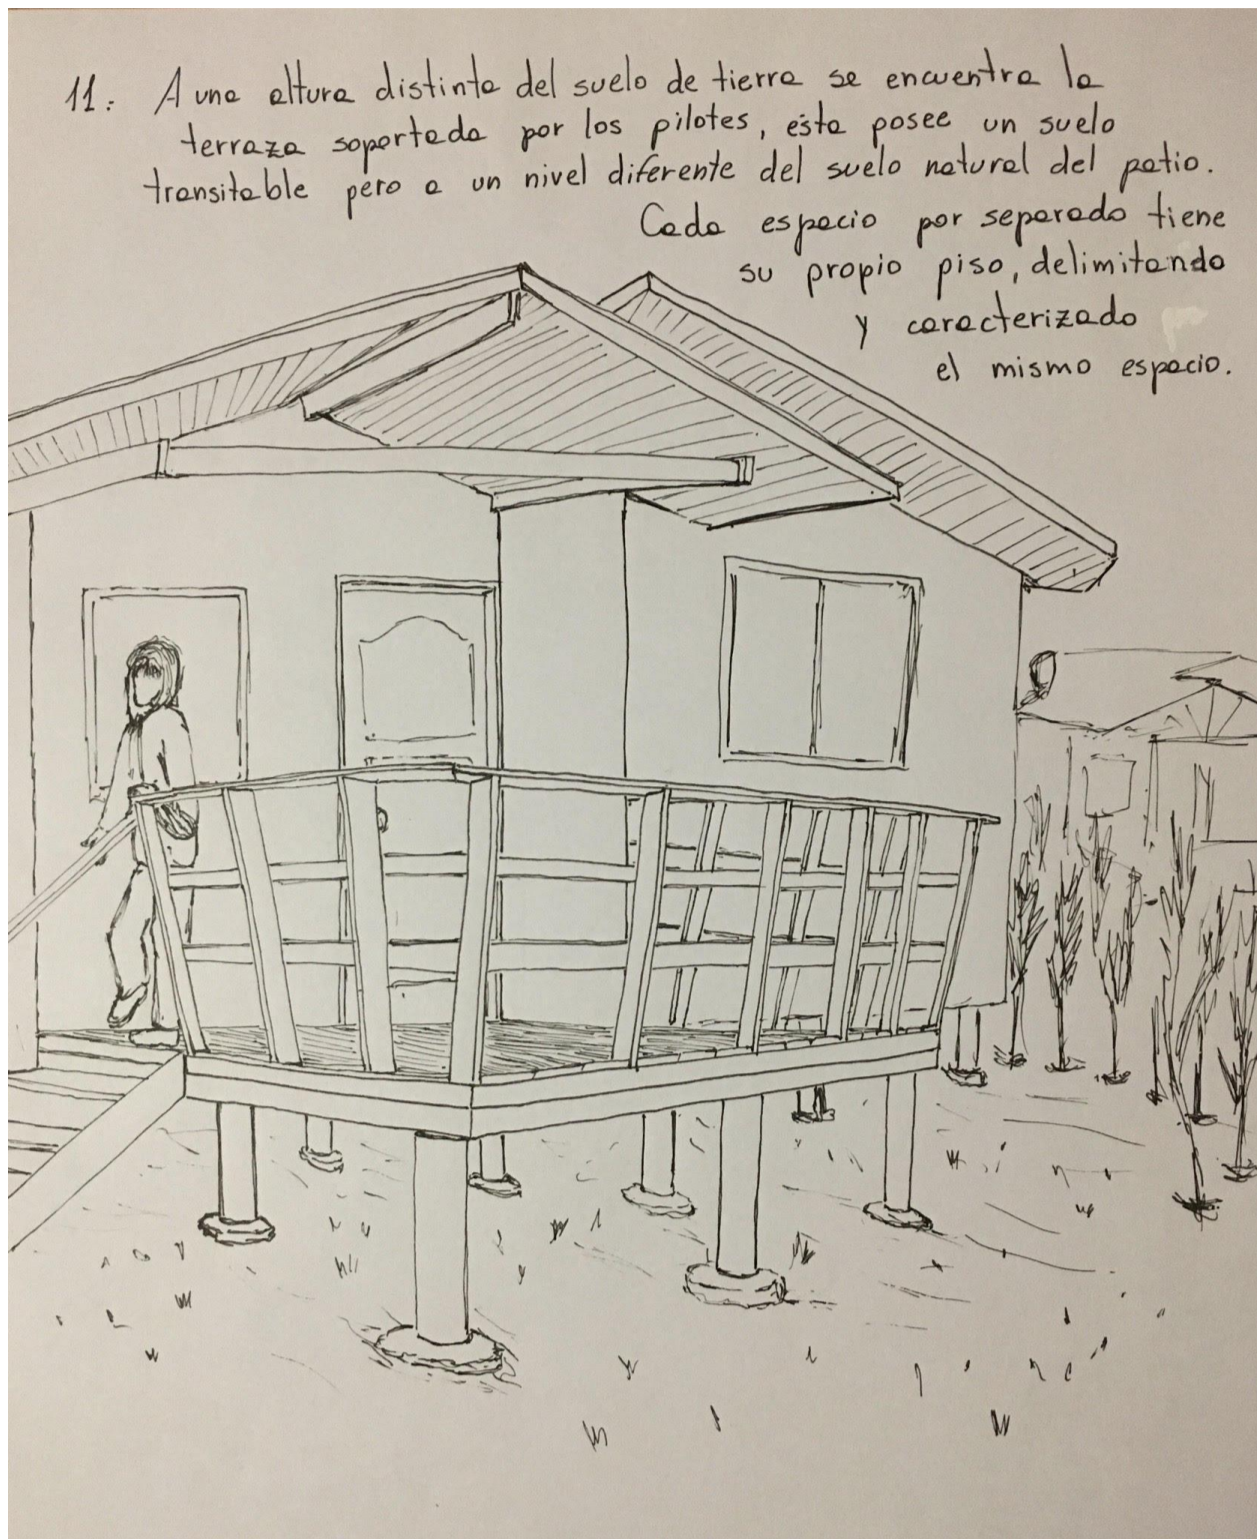 11. A una altura distinta del suelo de tierra se encuentra la
terraza soportada por los pilotes, ésta posee un suelo
transitable pero a un nivel diferente del suelo natural del patio.
Cada espacio por separado tiene
su propio piso, delimitando
y caracterizado
el mismo espacio.